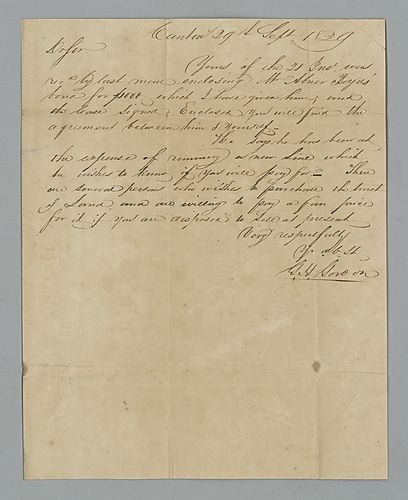 Canton 29th Sept. 1829
Dr Sir
Yours of the 21 Inst. was
recd by last mail enclosing Mr Abner Boyds'
bond for $1000 which I have given him, and
the lease signed, Enclosed you will find the
agreement between him & yourself—
He says he has been at
the expense of running a new line which
he wishes to know if you will pay for— There
are several persons who wishes to purchase the tract
of Land and are willing to pay a fair price
for it if you are disposed to sell at present
Very respectfully
Yr Ob St.